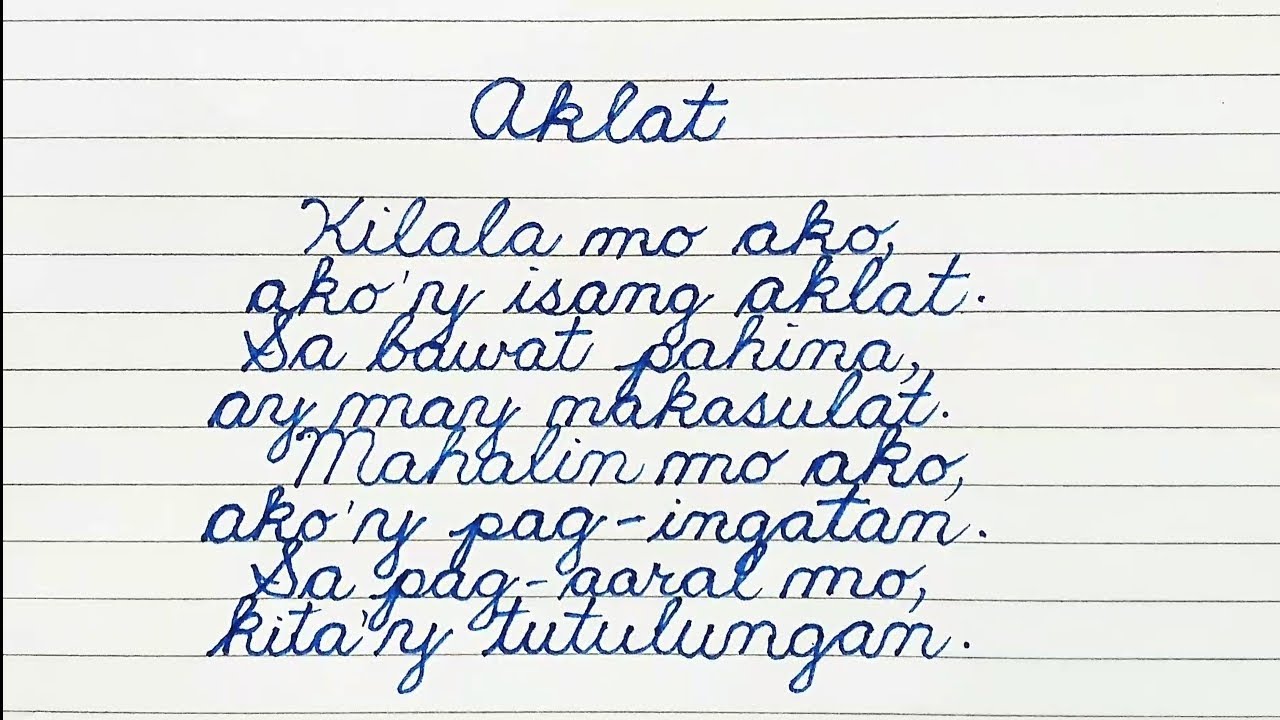 Aklat
Kilala mo ako,
ako'y isang aklat.
Sa bawat pahina,
ay may nakasulat.
Mahalin mo ako,
ako'y pag-ingatan.
Sa pag-aaral mo,
kita'y tutulungan.